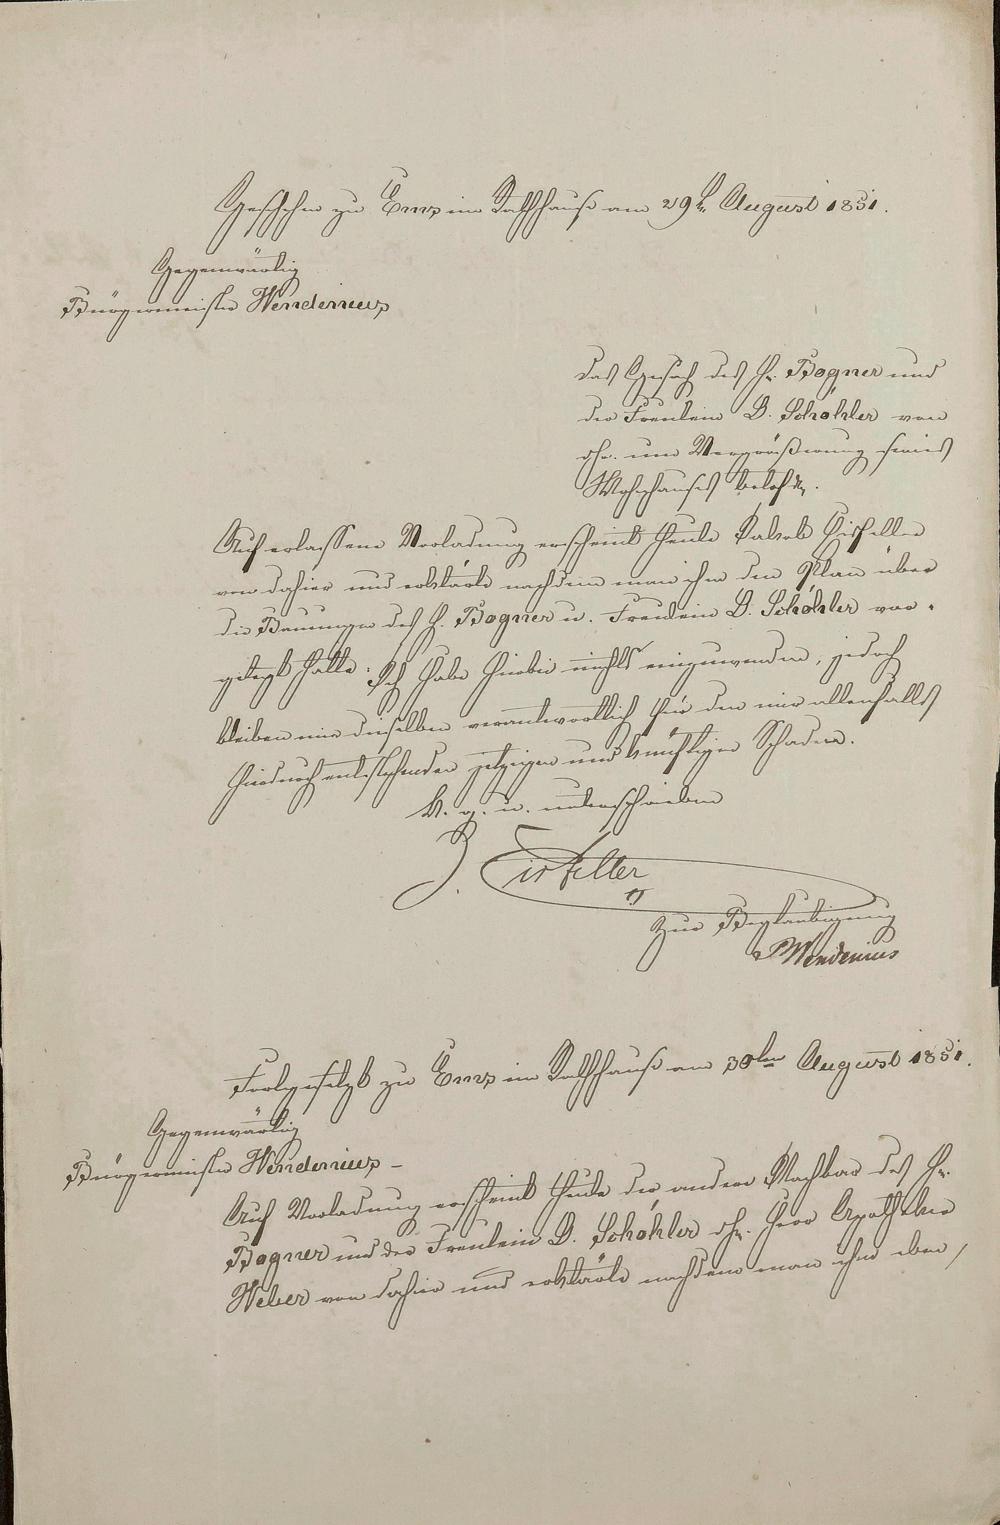 Geschehn zu Ems im Rathhause am 29t August 1851.
Gegenwärtig
Bürgermeister Wendenius
Das Gesuch des H. Bogner und
der Freulein D. Schöhler von
um Vergrößerung seines
Wohnhauses betrfd.
Auf erlassene Vorladung erscheint heute Jakob Eisfeller
von dahier und erklärte nachdem man ihm den Plan über
die Bauungen des H. Bogner u. Freulein D. Schöhler vor-
gelegt hatte: Ich habe hierbei nichts einzuwenden, jedoch
bleiben mir dieselben verantwortlich für den mir allenfalls
hierdurch entstehenden jetzigen und künftigen Schaden.
V. g. u. unterschrieben
J. Eisfeller
Zur Beglaubigung
Wendenius
Fortgesetzt zu Ems im Rathhause am 30ten August 1851.
Gegenwärtig
Bürgermeister Wendenius –
Auf Vorladung erscheint heute der andere Nachbar des H.
Bogner und der Freulein D. Schöhler Herr Apotheker
Weber von dahier und erklärte nachdem man ihm eben /